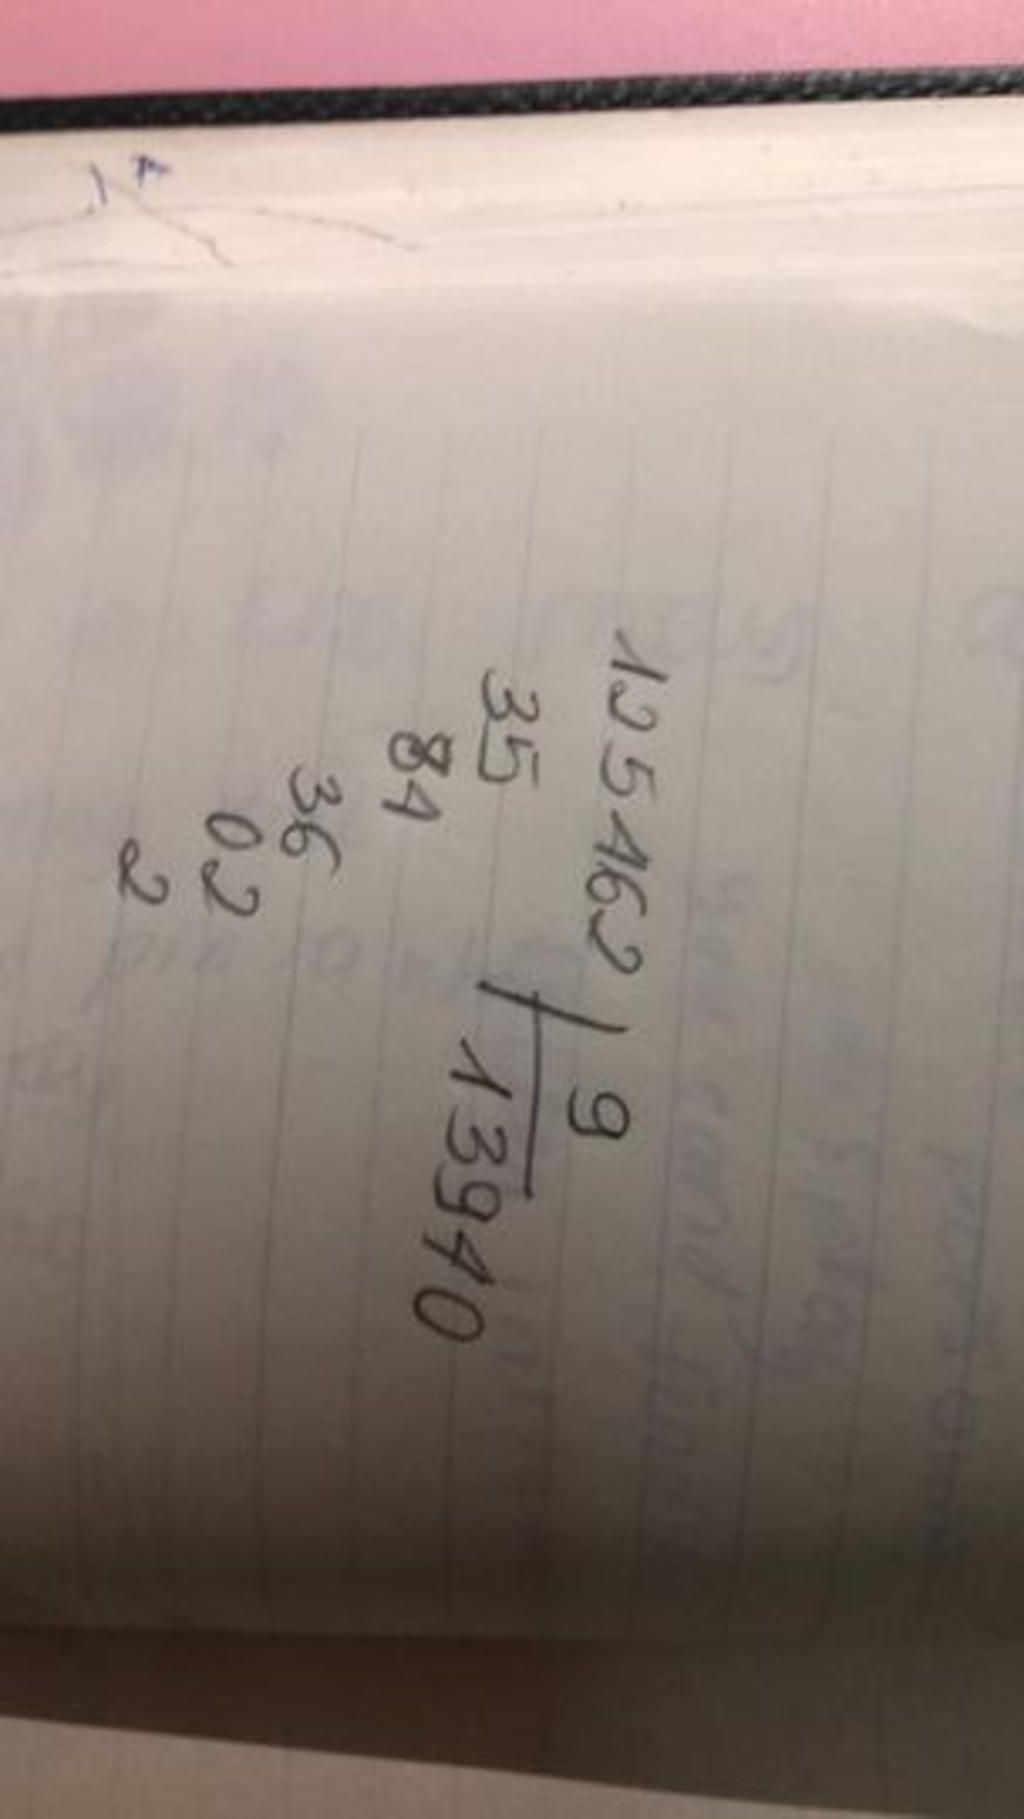 125462 | 9
35 13940
84
36
02
2